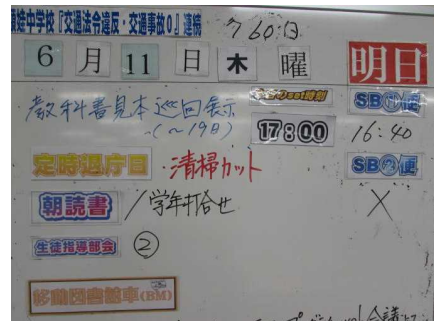 中学校『交通法令違反・交通事故0』連続 760日
6月11日木曜 明日
教科書見本巡回展示 set時刻 SB 便
(～19日) 17:00 16:40
定時退庁日 清掃カット SB 便
朝読書 /学年打合せ ×
生徒指導部会 ②
移動図書館車(BM)
会議